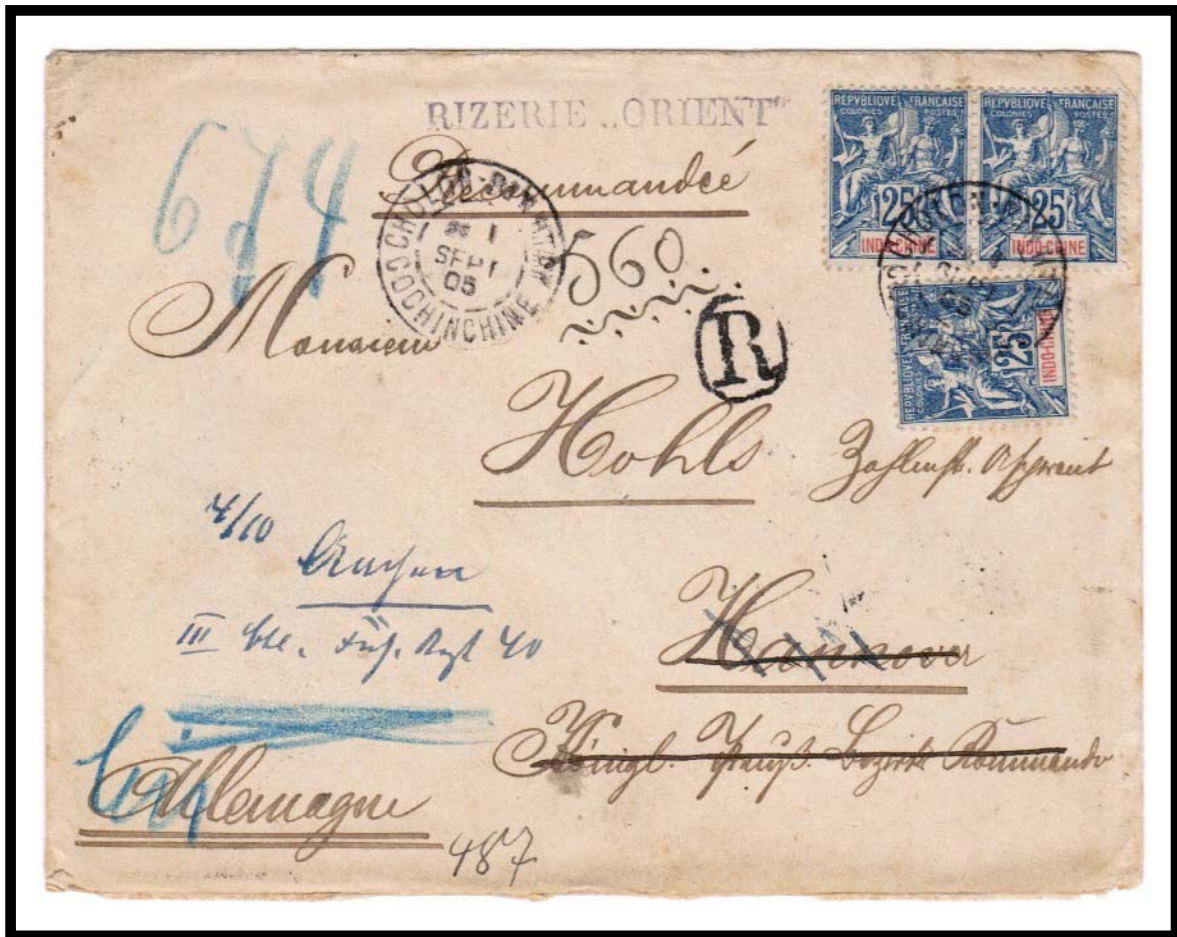 RIZERIE „ORIENT"
Recommandée
674
560
CHOLON
COCHINCHINE
1
SEPT
05
REPVBLIQVE FRANÇAISE
COLONIES POSTES
25
INDO-CHINE
REPVBLIQVE FRANÇAISE
COLONIES POSTES
25
INDO-CHINE
REPVBLIQVE FRANÇAISE
COLONIES
25
INDO-CHINE
R
Monsieur
Hohls
Zahlmstr. Aspirant
4/10
Aachen
III Füs. Regt 40
Hannover
Königl. Preuß. Bezirks Kommando
Allemagne
487